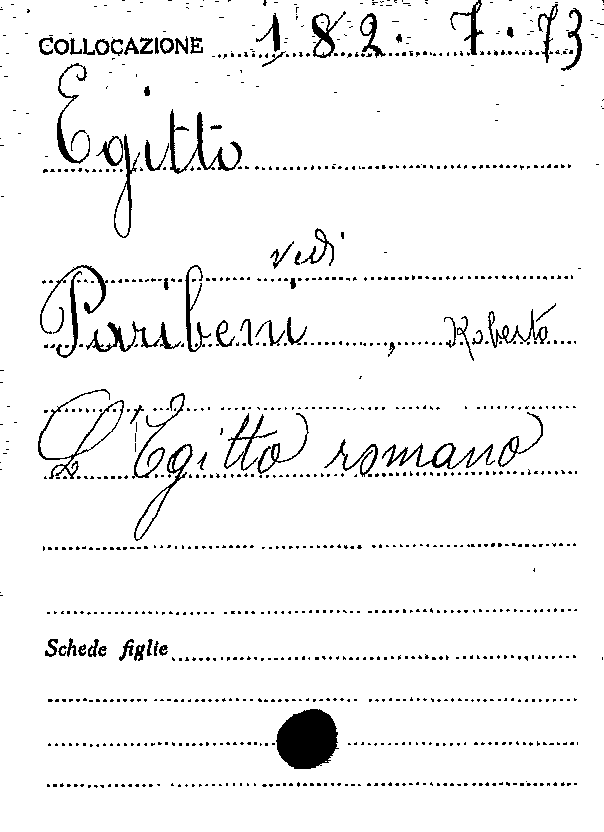 COLLOCAZIONE 182.7.73
Egitto
vedi
Paribeni, Roberto
L'Egitto romano
Schede figlie